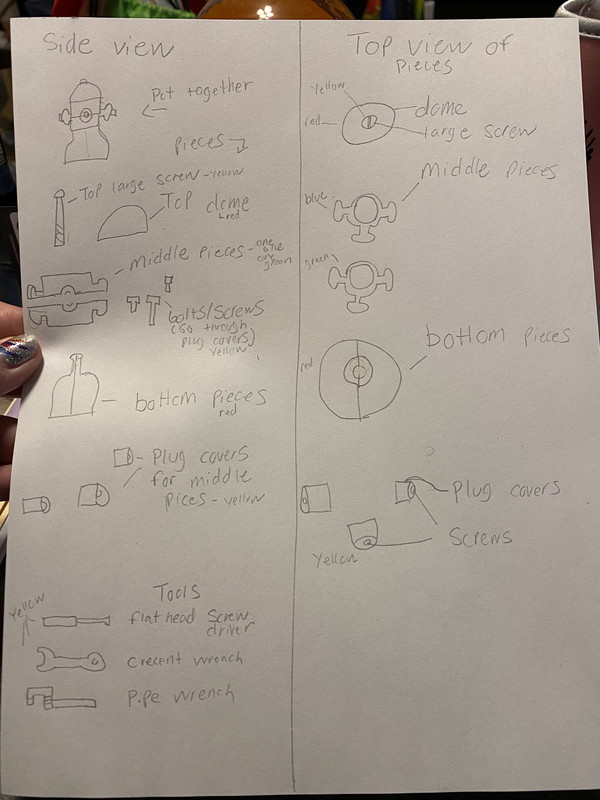 Side view
Put together
pieces
Top large screw - yellow
Top dome
red
Middle pieces - one blue
one green
bolts/screws
(Go through
plug covers)
yellow
bottom pieces
red
Plug covers
for middle
pices - yellow
Tools
Yellow
flat head screw
driver
crecent wrench
Pipe wrench
Top view of
pieces
Yellow
red
dome
large screw
Middle pieces
blue
green
bottom pieces
red
?
Plug covers
Screws
Yellow